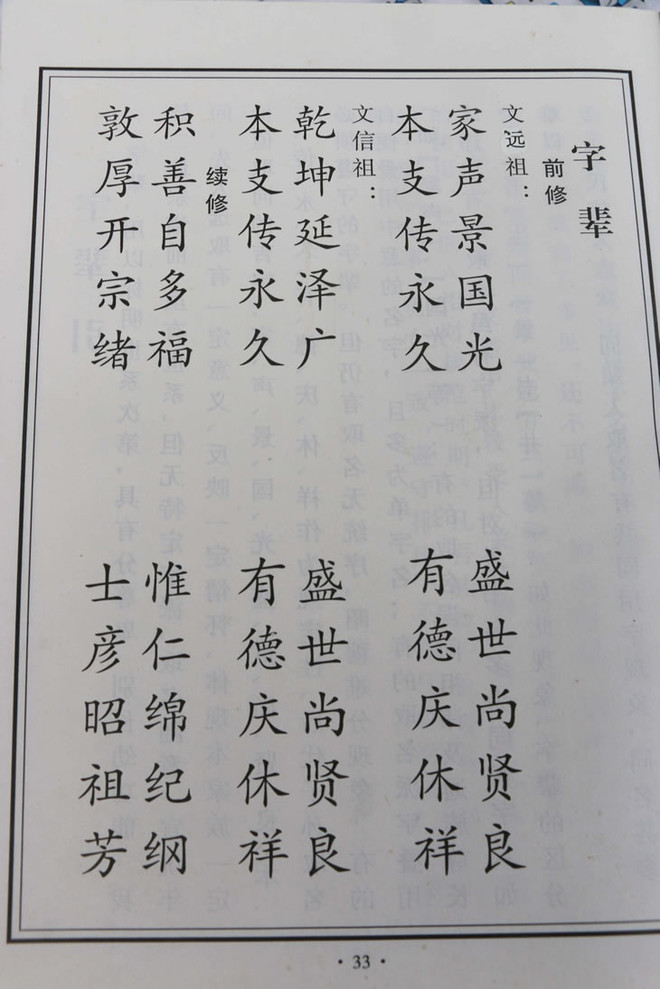 字辈
前修
文远祖：
家声景国光 盛世尚贤良
本支传永久 有德庆休祥
文信祖：
乾坤延泽广 盛世尚贤良
本支传永久 有德庆休祥
续修
积善自多福 惟仁绵纪纲
敦厚开宗绪 士彦昭祖芳
·33·